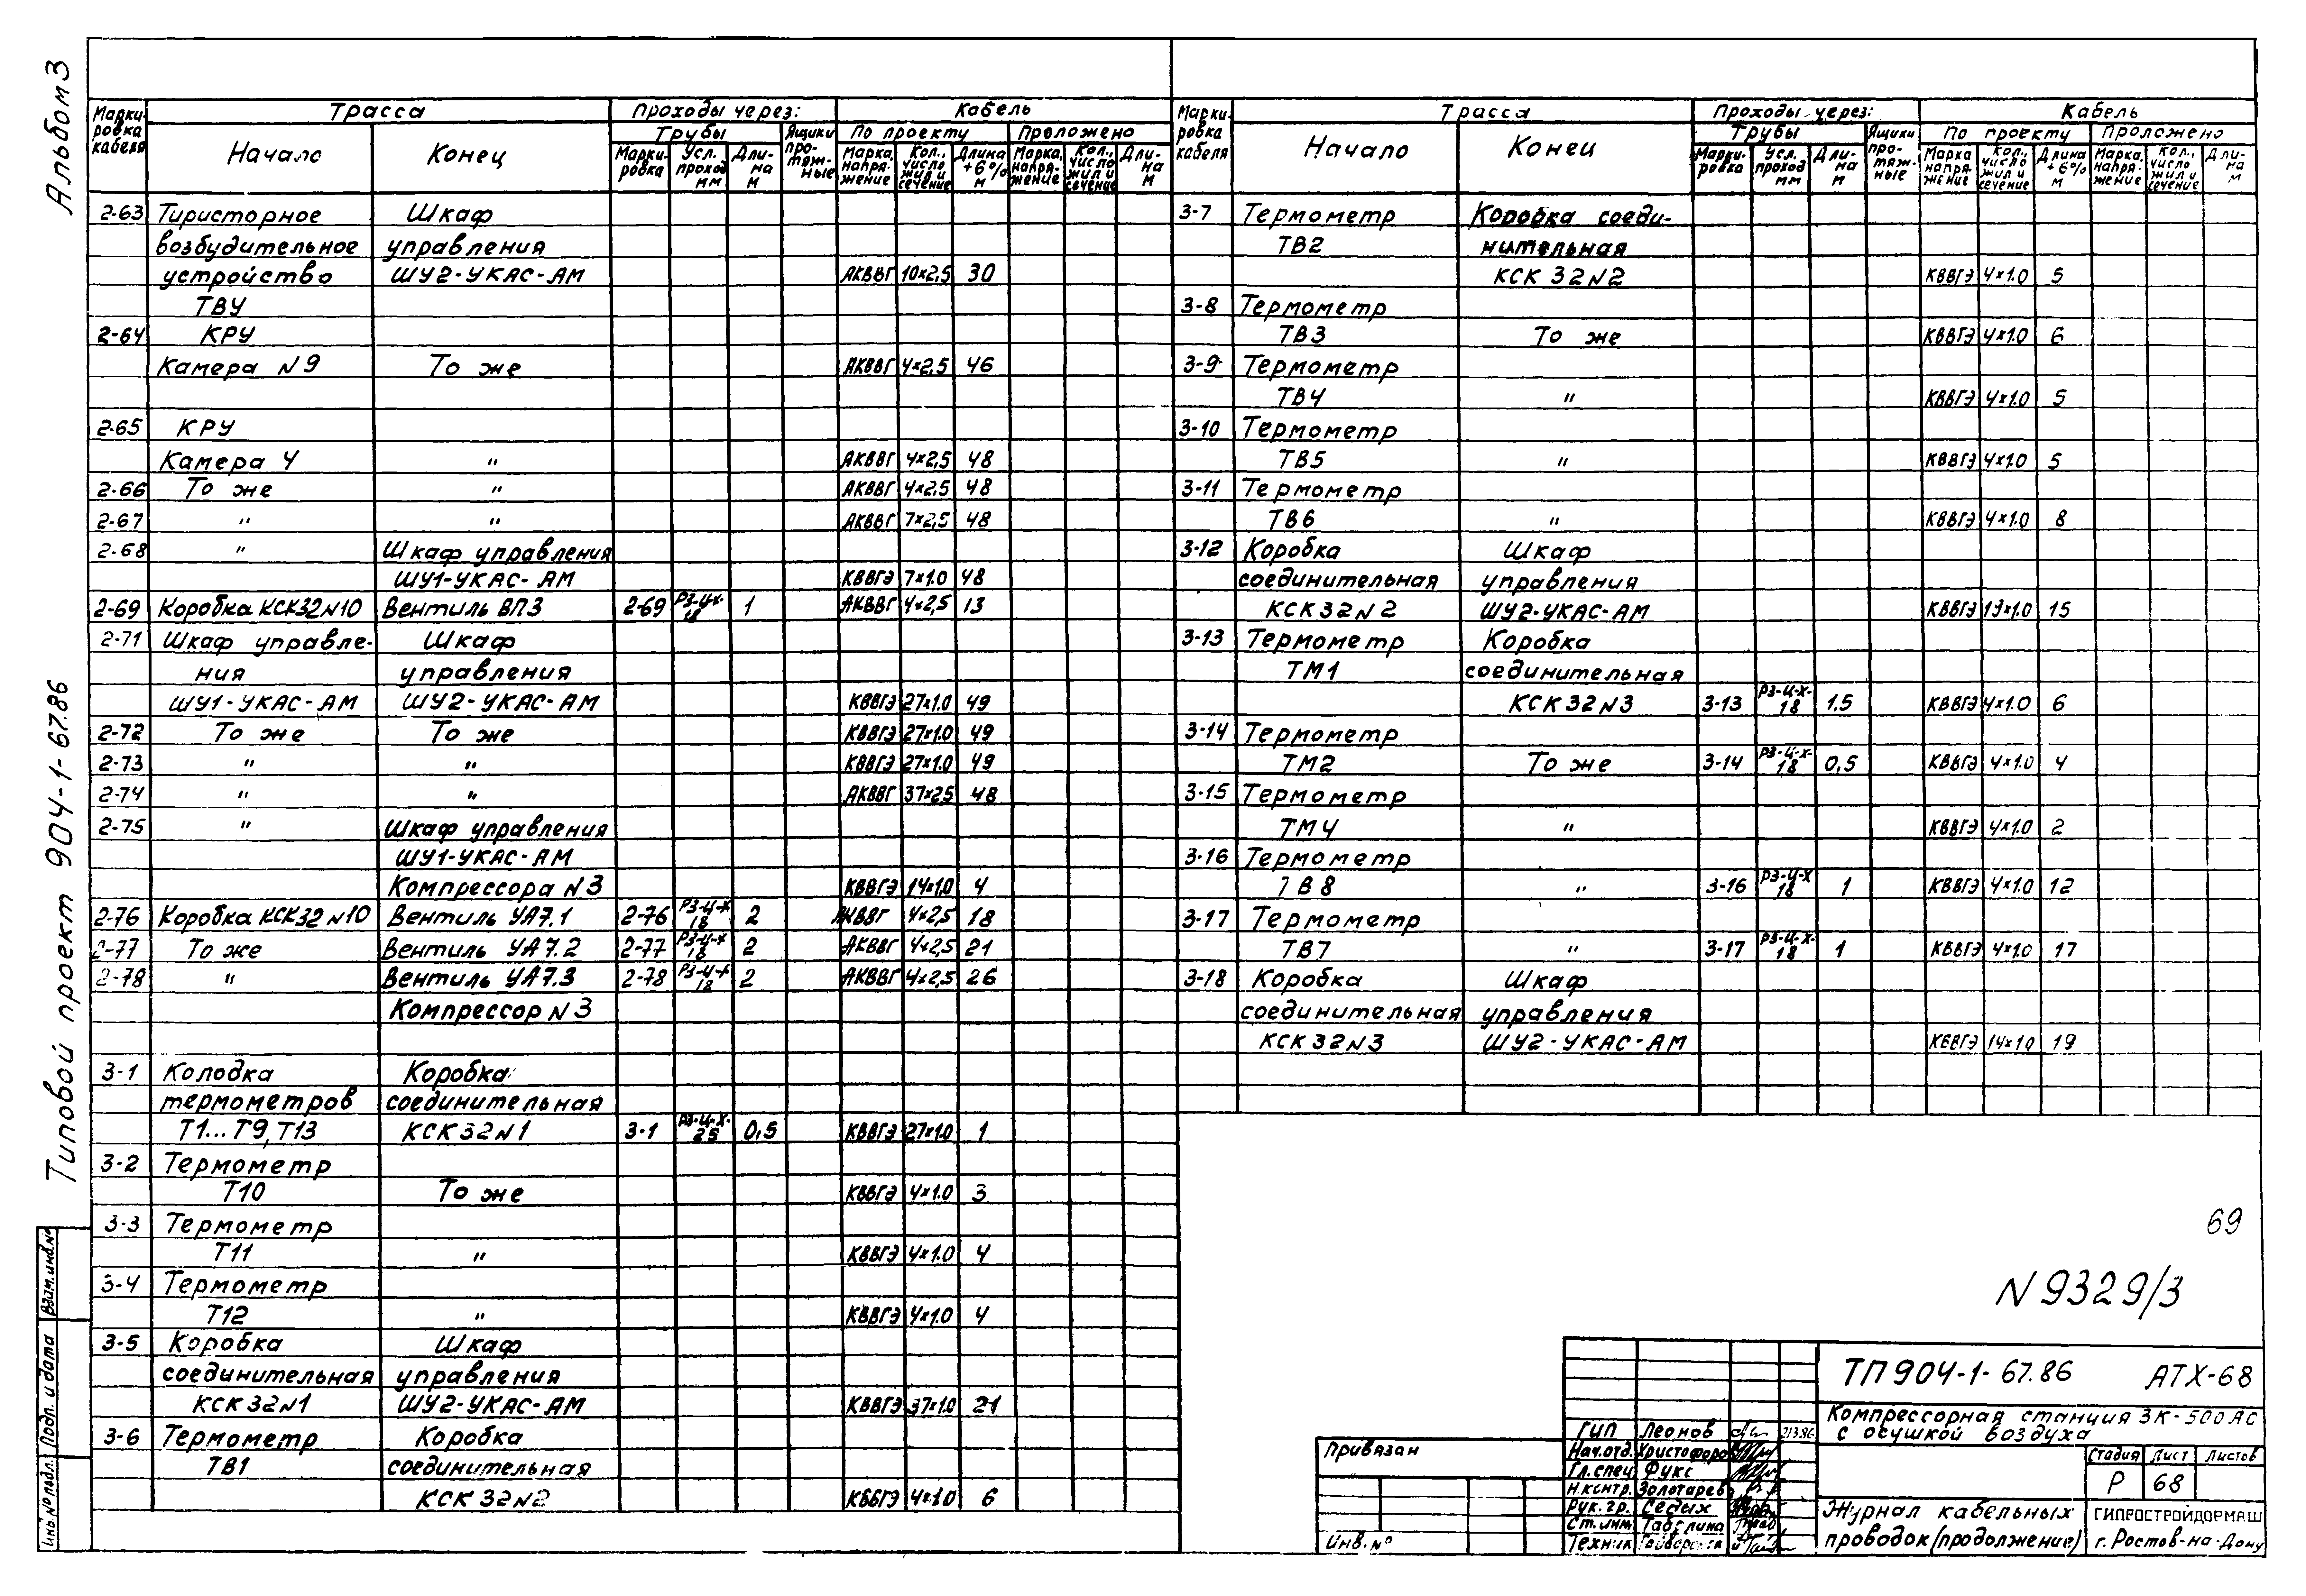 Альбом 3
Типовой проект 904-1-67.86
Взам.инв.№
Подп. и дата
Инв.№ подл.
Маркировка кабеля | Трасса | Проходы через: | Кабель
Начало | Конец | Трубы | Ящики протяжные | По проекту | Проложено
Маркировка | Усл. проход мм | Длина м | Марка, напряжение | Кол., число жил и сечение | Длина +6% м | Марка, напряжение | Кол., число жил и сечение | Длина м
2-63 Тиристорное Шкаф
возбудительное управления
устройство ШУ2-УКАС-АМ АКВВГ 10×2,5 30
ТВУ
2-64 КРУ
Камера N9 То же АКВВГ 4×2,5 46
2-65 КРУ
Камера 4 " АКВВГ 4×2,5 48
2-66 То же " АКВВГ 4×2,5 48
2-67 " " АКВВГ 7×2,5 48
2-68 " Шкаф управления
ШУ1-УКАС-АМ КВВГЭ 7×1.0 48
2-69 Коробка КСК32N10 Вентиль ВП3 2-69 РЗ-Ц-Х-18 1 АКВВГ 4×2,5 13
2-71 Шкаф управле- Шкаф
ния управления
ШУ1-УКАС-АМ ШУ2-УКАС-АМ КВВГЭ 27×1.0 49
2-72 То же То же КВВГЭ 27×1.0 49
2-73 " " КВВГЭ 27×1.0 49
2-74 " " АКВВГ 37×2,5 48
2-75 " Шкаф управления
ШУ1-УКАС-АМ
Компрессора N3 КВВГЭ 14×1,0 4
2-76 Коробка КСК32N10 Вентиль УА7.1 2-76 РЗ-Ц-Х 18 2 АКВВГ 4×2,5 18
2-77 То же Вентиль УА7.2 2-77 РЗ-Ц-Х 18 2 АКВВГ 4×2,5 21
2-78 " Вентиль УА7.3 2-78 РЗ-Ц-Х 18 2 АКВВГ 4×2,5 26
Компрессор N3
3-1 Колодка Коробка
термометров соединительная
Т1...Т9, Т13 КСК32N1 3-1 РЗ-Ц-Х-25 0,5 КВВГЭ 27×1.0 1
3-2 Термометр
Т10 То же КВВГЭ 4×1.0 3
3-3 Термометр
Т11 " КВВГЭ 4×1.0 4
3-4 Термометр
Т12 " КВВГЭ 4×1.0 4
3-5 Коробка Шкаф
соединительная управления
КСК32N1 ШУ2-УКАС-АМ КВВГЭ 37×1.0 21
3-6 Термометр Коробка
ТВ1 соединительная
КСК32N2 КВВГЭ 4×1.0 6
Маркировка кабеля | Трасса | Проходы через: | Кабель
Начало | Конец | Трубы | Ящики протяжные | По проекту | Проложено
Маркировка | Усл. проход мм | Длина м | Марка напряжение | Кол., число жил и сечение | Длина +6% м | Марка, напряжение | Кол., число жил и сечение | Длина м
3-7 Термометр Коробка соеди-
ТВ2 нительная
КСК 32N2 КВВГЭ 4×1.0 5
3-8 Термометр
ТВ3 То же КВВГЭ 4×1.0 6
3-9 Термометр
ТВ4 " КВВГЭ 4×1.0 5
3-10 Термометр
ТВ5 " КВВГЭ 4×1.0 5
3-11 Термометр
ТВ6 " КВВГЭ 4×1.0 8
3-12 Коробка Шкаф
соединительная управления
КСК32N2 ШУ2-УКАС-АМ КВВГЭ 19×1.0 15
3-13 Термометр Коробка
ТМ1 соединительная
КСК32N3 3-13 РЗ-Ц-Х-18 1,5 КВВГЭ 4×1.0 6
3-14 Термометр
ТМ2 То же 3-14 РЗ-Ц-Х-18 0,5 КВВГЭ 4×1.0 4
3-15 Термометр
ТМ4 " КВВГЭ 4×1.0 2
3-16 Термометр
ТВ8 " 3-16 РЗ-Ц-Х 18 1 КВВГЭ 4×1.0 12
3-17 Термометр
ТВ7 " 3-17 РЗ-Ц-Х-18 1 КВВГЭ 4×1.0 17
3-18 Коробка Шкаф
соединительная управления
КСК32N3 ШУ2-УКАС-АМ КВВГЭ 14×1.0 19
69
N 9329/3
ТП904-1-67.86 АТХ-68
Компрессорная станция 3К-500АС
с осушкой воздуха
Стадия Лист Листов
Р 68
Журнал кабельных
проводок (продолжение)
ГИПРОСТРОЙДОРМАШ
г. Ростов-на-Дону
Привязан
Инв.№
ГИП Леонов
Нач.отд. Христофоров
Гл.спец Фукс
Н.контр. Золотарев
Рук.гр. Седых
Ст.инж
Техник